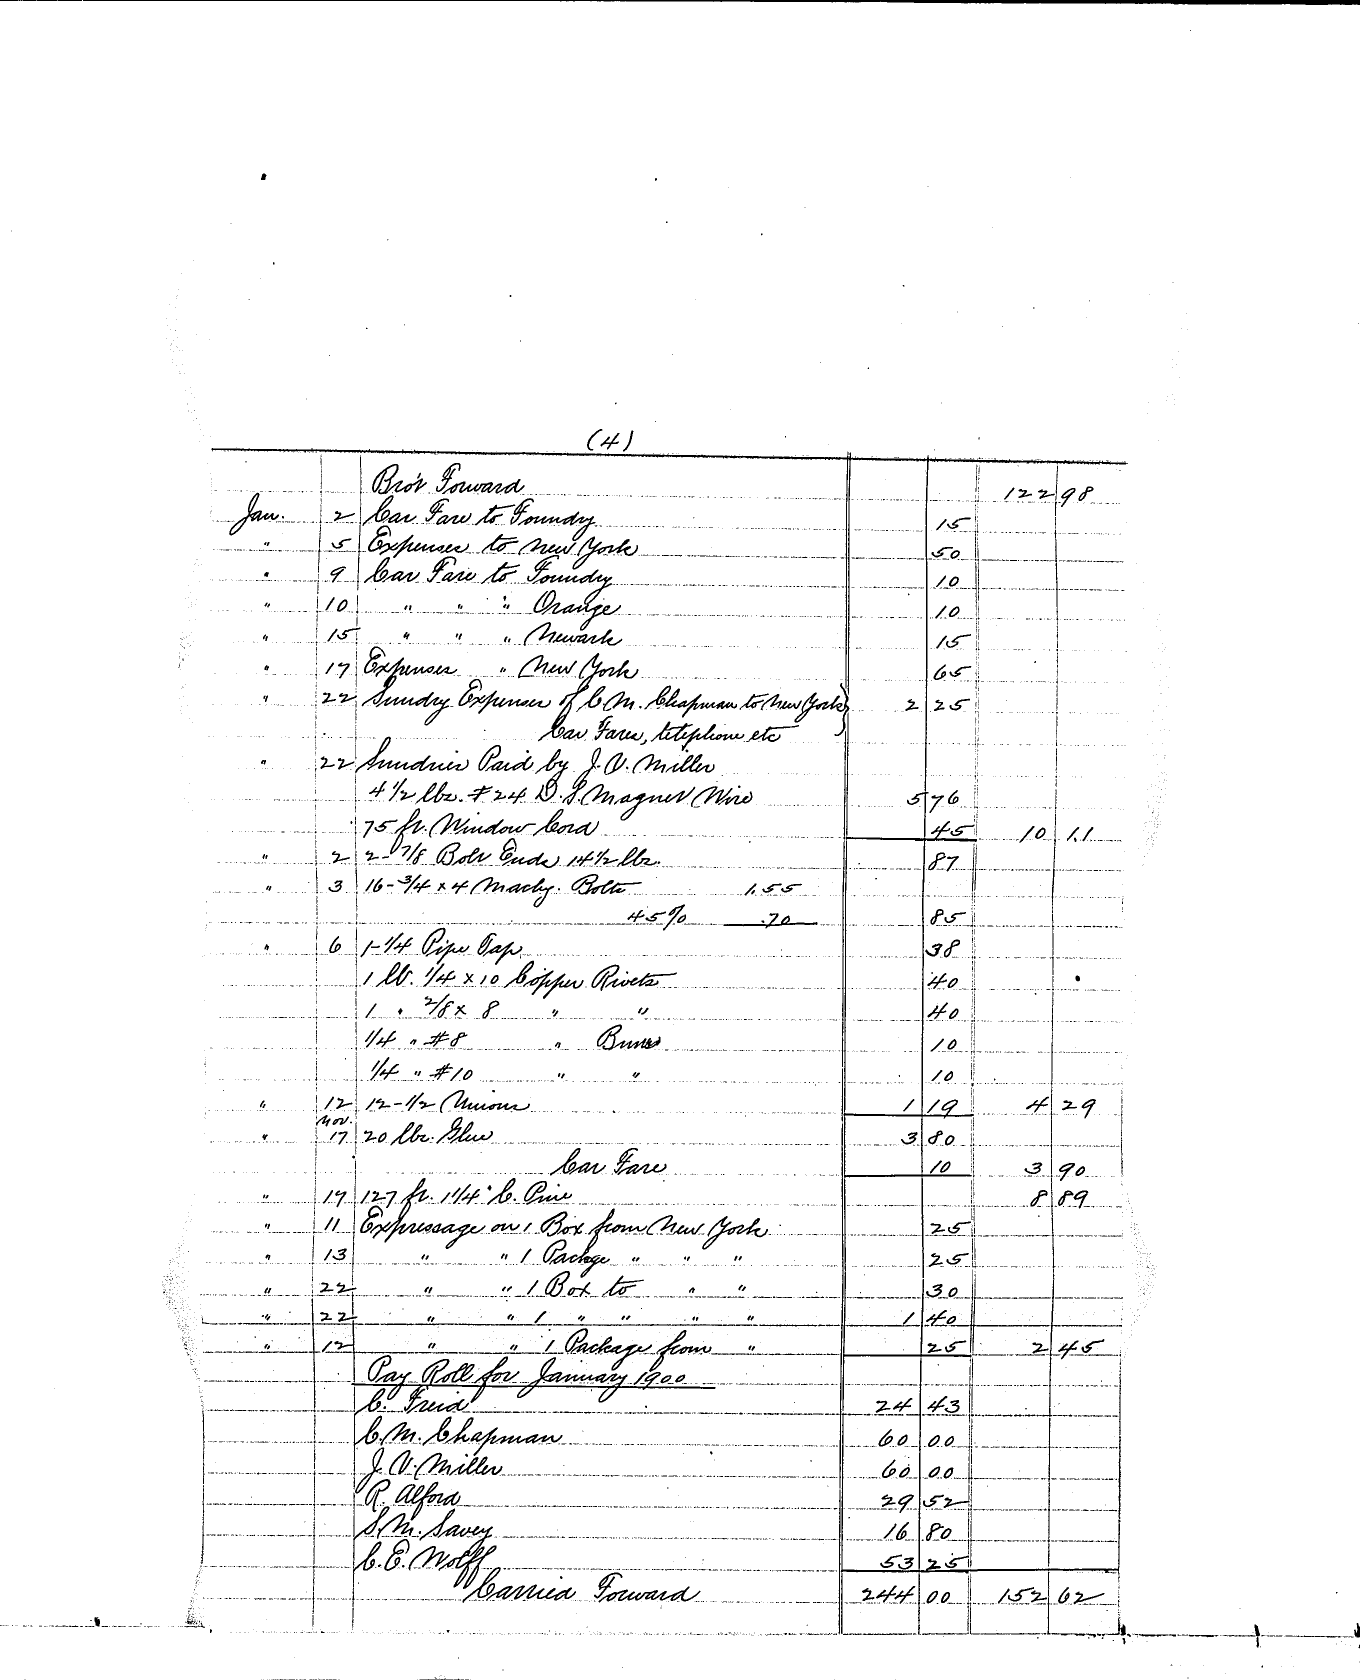 (4)
Bro't Forward 122 98
Jan. 2 Car Fare to Foundry 15
" 5 Expenses to New York 50
" 9 Car Fare to Foundry 10
" 10 " " " Orange 10
" 15 " " " Newark 15
" 17 Expenses " New York 65
" 22 Sundry Expenses of C. M. Chapman to New York } 2 25
Car Fares, telephone etc
" 22 Sundries Paid by J. V. Miller
4 1/2 lbs. #24 D. S. Magnet Wire 5 76
75 ft. Window Cord 45 10 11
" 2 2-7/8 Bolt Ends 14 1/2 lbs. 87
" 3 16-3/4 x 4 Machy. Bolts 1.55
45% .70 85
" 6 1-1/4 Pipe Tap 38
1 lb. 1/4 x 10 Copper Rivets 40
1 " 2/8 x 8 " " 40
1/4 " #8 " Burrs 10
1/4 " #10 " " 10
" 12 12-1/2 Unions 1 19 4 29
Nov.
" 17 20 lbs. Glue 3 80
Car Fare 10 3 90
" 17 127 ft. 1 1/4" C. Pine 8 89
" 11 Expressage on 1 Box from New York 25
" 13 " " 1 Packge " " " 25
" 22 " " 1 Box to " " 30
" 22 " " 1 " " " " 1 40
" 12 " " 1 Package from " 25 2 45
Pay Roll for January 1900
C. Freid 24 43
C. M. Chapman 60 00
J. V. Miller 60 00
R. Alford 29 52
S. M. Savey 16 80
C. E. Wolff 53 25
Carried Forward 244 00 152 62